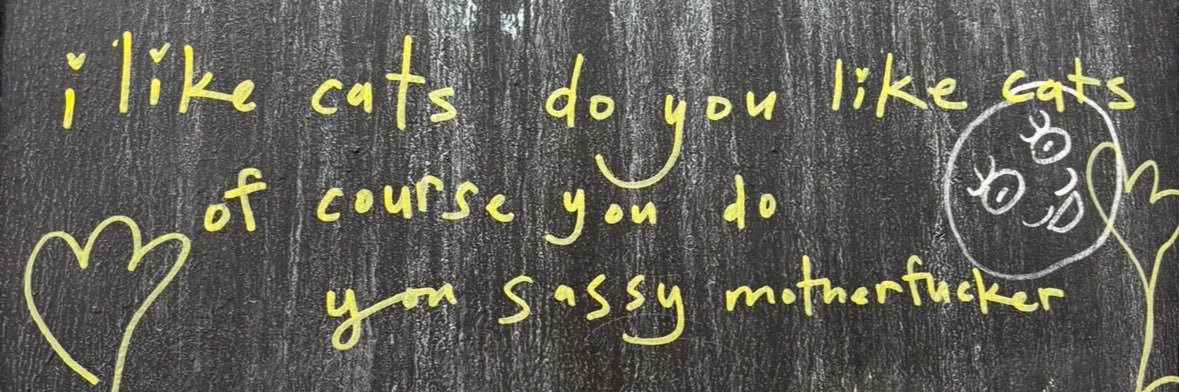 i like cats do you like cats
of course you do
you sassy motherfucker